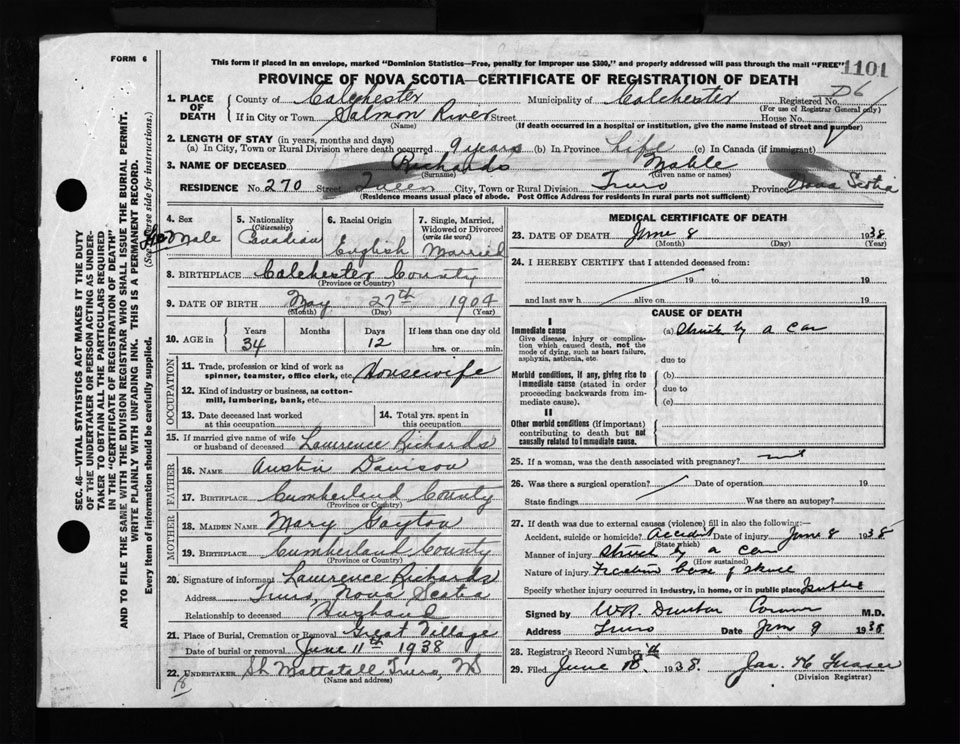 FORM 6
This form if placed in an envelope, marked "Dominion Statistics—Free, penalty for improper use $300," and properly addressed will pass through the mail "FREE"
1101
PROVINCE OF NOVA SCOTIA—CERTIFICATE OF REGISTRATION OF DEATH
D6
1. PLACE OF DEATH County of Colchester Municipality of Colchester Registered No.
(For use of Registrar General only)
If in City or Town Salmon River Street House No.
(Name) (If death occurred in a hospital or institution, give the name instead of street and number)
2. LENGTH OF STAY (in years, months and days)
(a) In City, Town or Rural Division where death occurred 9 years (b) In Province Life (c) In Canada (if immigrant)
3. NAME OF DECEASED Richards Mable
(Surname) (Given name or names)
RESIDENCE No. 270 Street Queen City, Town or Rural Division Truro Province Nova Scotia
(Residence means usual place of abode. Post Office Address for residents in rural parts not sufficient)
4. Sex 5. Nationality (Citizenship) 6. Racial Origin 7. Single, Married, Widowed or Divorced (write the word)
Canadian English Married
8. BIRTHPLACE Colchester County
(Province or Country)
9. DATE OF BIRTH May 27th 1904
(Month) (Day) (Year)
10. AGE in Years Months Days If less than one day old
34 12 hrs. or min.
OCCUPATION
11. Trade, profession or kind of work as spinner, teamster, office clerk, etc. Housewife
12. Kind of industry or business, as cotton-mill, lumbering, bank, etc.
13. Date deceased last worked at this occupation 14. Total yrs. spent in this occupation
15. If married give name of wife or husband of deceased Lawrence Richards
FATHER
16. NAME Austin Davison
17. BIRTHPLACE Cumberland County
(Province or Country)
MOTHER
18. MAIDEN NAME Mary Gayton
19. BIRTHPLACE Cumberland County
(Province or Country)
20. Signature of informant Lawrence Richards
Address Truro, Nova Scotia
Relationship to deceased Husband
21. Place of Burial, Cremation or Removal Great Village
Date of burial or removal June 11th 1938
22. UNDERTAKER Mattatall Truro, NS
MEDICAL CERTIFICATE OF DEATH
23. DATE OF DEATH June 8 1938
(Month) (Day) (Year)
24. I HEREBY CERTIFY that I attended deceased from:
19 to 19
and last saw h alive on 19
CAUSE OF DEATH
I
Immediate cause (a) Struck by a car
Give disease, injury or complication which caused death, not the mode of dying, such as heart failure, asphyxia, asthenia, etc.
due to
Morbid conditions, if any, giving rise to immediate cause (stated in order proceeding backwards from immediate cause). (b)
due to
(c)
II
Other morbid conditions (if important) contributing to death but not causally related to immediate cause.
25. If a woman, was the death associated with pregnancy?
26. Was there a surgical operation? Date of operation 19
State findings Was there an autopsy?
27. If death was due to external causes (violence) fill in also the following:—
Accident, suicide or homicide? Accident Date of injury June 8 1938
(State which)
Manner of injury Struck by a car
(How sustained)
Nature of injury Fracture base of skull
Specify whether injury occurred in industry, in home, or in public place Public
Signed by W.R. Dunbar Coroner M.D.
Address Truro Date Jun 9 1938
28. Registrar's Record Number
29. Filed June 1938. Jas. H Fraser
(Division Registrar)
SEC. 46—VITAL STATISTICS ACT MAKES IT THE DUTY
OF THE UNDERTAKER OR PERSON ACTING AS UNDER-
TAKER TO OBTAIN ALL THE PARTICULARS REQUIRED
IN THE "CERTIFICATE OF REGISTRATION OF DEATH"
AND TO FILE THE SAME WITH THE DIVISION REGISTRAR WHO SHALL ISSUE THE BURIAL PERMIT.
WRITE PLAINLY WITH UNFADING INK. THIS IS A PERMANENT RECORD.
Every item of information should be carefully supplied. (See reverse side for instructions.)